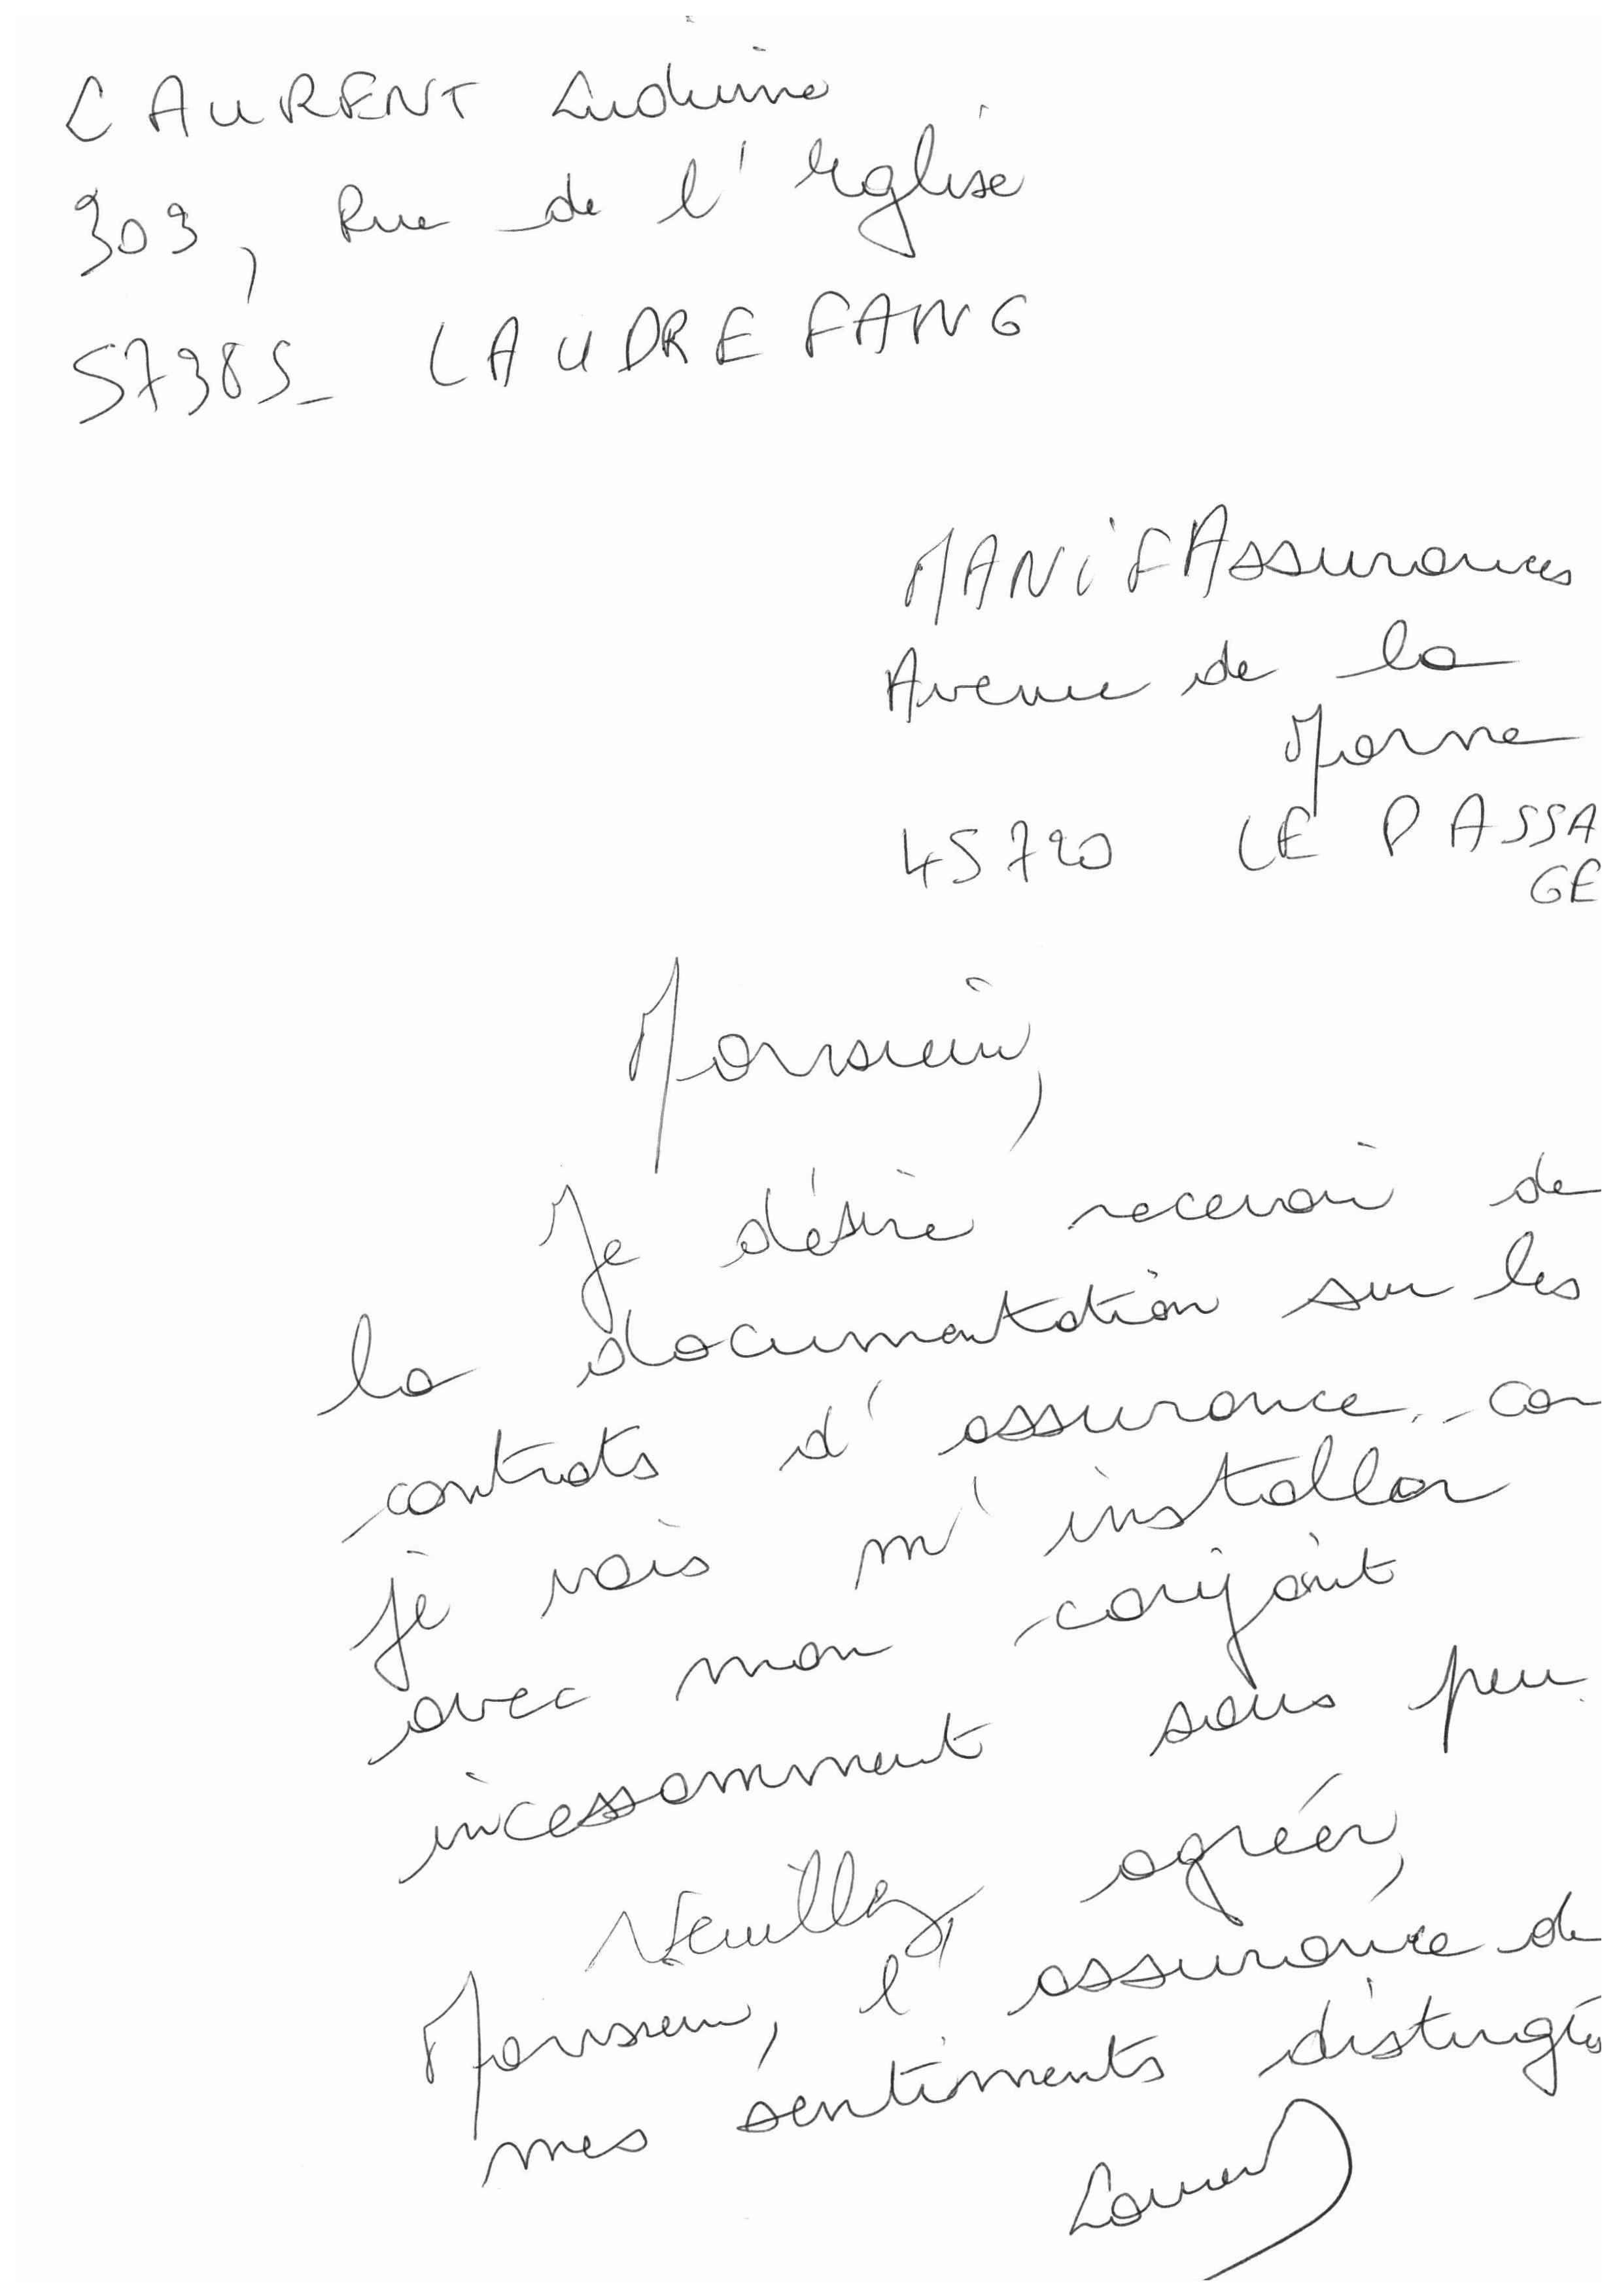 LAURENT Ludivine
303, Rue de l'église
57385_ LAUDREFANG
MANiFAssurances
Avenue de la
Marne
45720 LE PASSA
GE
Monsieur,
Je désire recevoir de
la documentation sur les
contrats d'assurance car
je vais m'installer
avec mon conjoint
incessamment sous peu.
Veuillez, agréer,
Monsieur, l'assurance de
mes sentiments distingés
Laurent